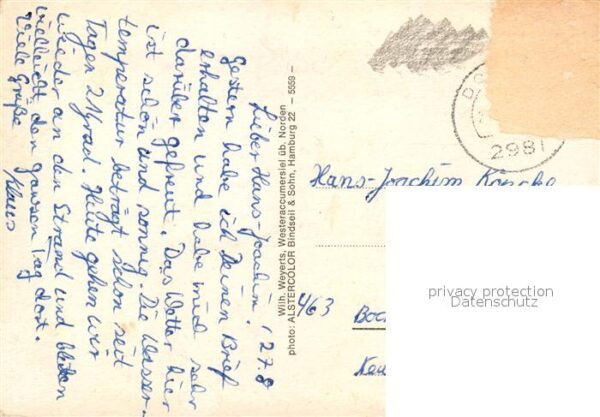 Lieber Hans-Joachim! 27.8
Gestern habe ich Deinen Brief
erhalten und habe mich sehr
darüber gefreut. Das Wetter hier
ist schön und sonnig. Die Wasser-
temperatur beträgt schon seit
Tagen 21 Grad. Heute gehen wir
wieder an den Strand und bleiben
vielleicht den ganzen Tag dort.
Viele Grüße
Klaus
Wilh. Weyerts, Westeraccumersiel üb. Norden
photo: ALSTERCOLOR Bindseil & Sohn, Hamburg 22 — 5559 —
2981
Hans-Joachim
463
privacy protection
Datenschutz